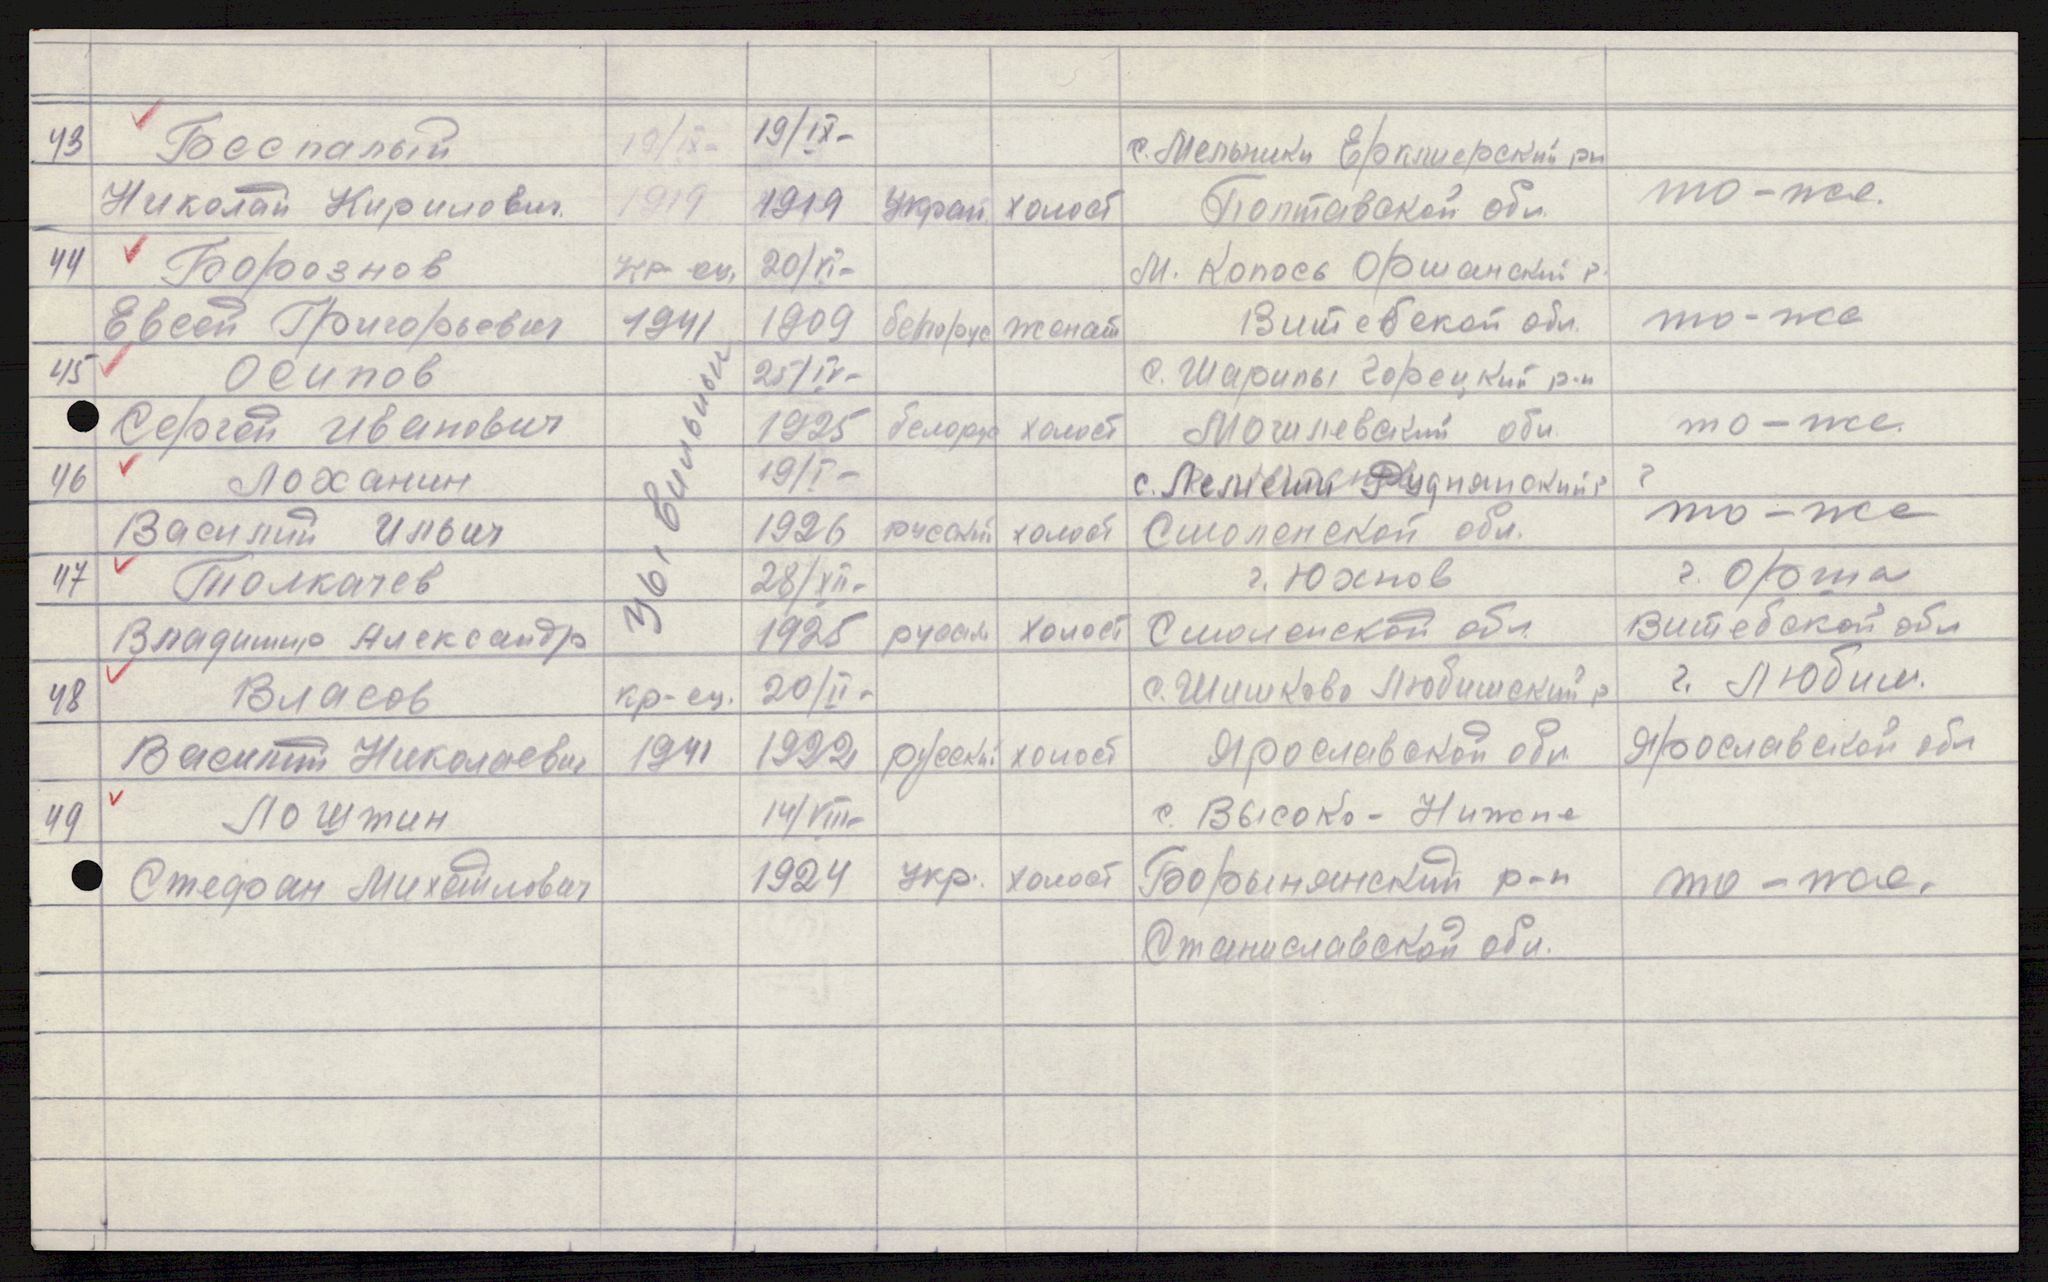 43 Беспалый 19/IX- 19/IX- с. Мельники Ерклиерский рн
Николай Кирилович. 1919 1919 Украй. холост Полтавской обл. то-же.
44 Борознов кр-ец. 20/VI- М. Копось Оршанский р.
Евсей Григорьевич 1941 1909 белорус женат Витебской обл. то-же
45 Осипов 25/IV- с. Шарипы Горецкий р-н
Сергей Иванович 1925 белорус холост Могилевский обл. то-же.
46 Лоханин 19/I- с. Руднянский г
Василий Ильич 1926 русский холост Смоленской обл. то-же
47 Толкачев 28/XII- г. Юхнов г. Орша
Владимир Александр русск 1925 холост Смоленской обл. Витебской обл
48 Власов кр-ец. 20/II- с. Шишково Любимский р г. Любим.
Василий Николаевич 1941 1922 русский холост Ярославской обл. Ярославской обл
49 Лощтин 14/VIII- с. Высоко-Нижне
Стефан Михайлович 1924 Укр. холост Борынянский р-н то-же.
Станиславской обл.